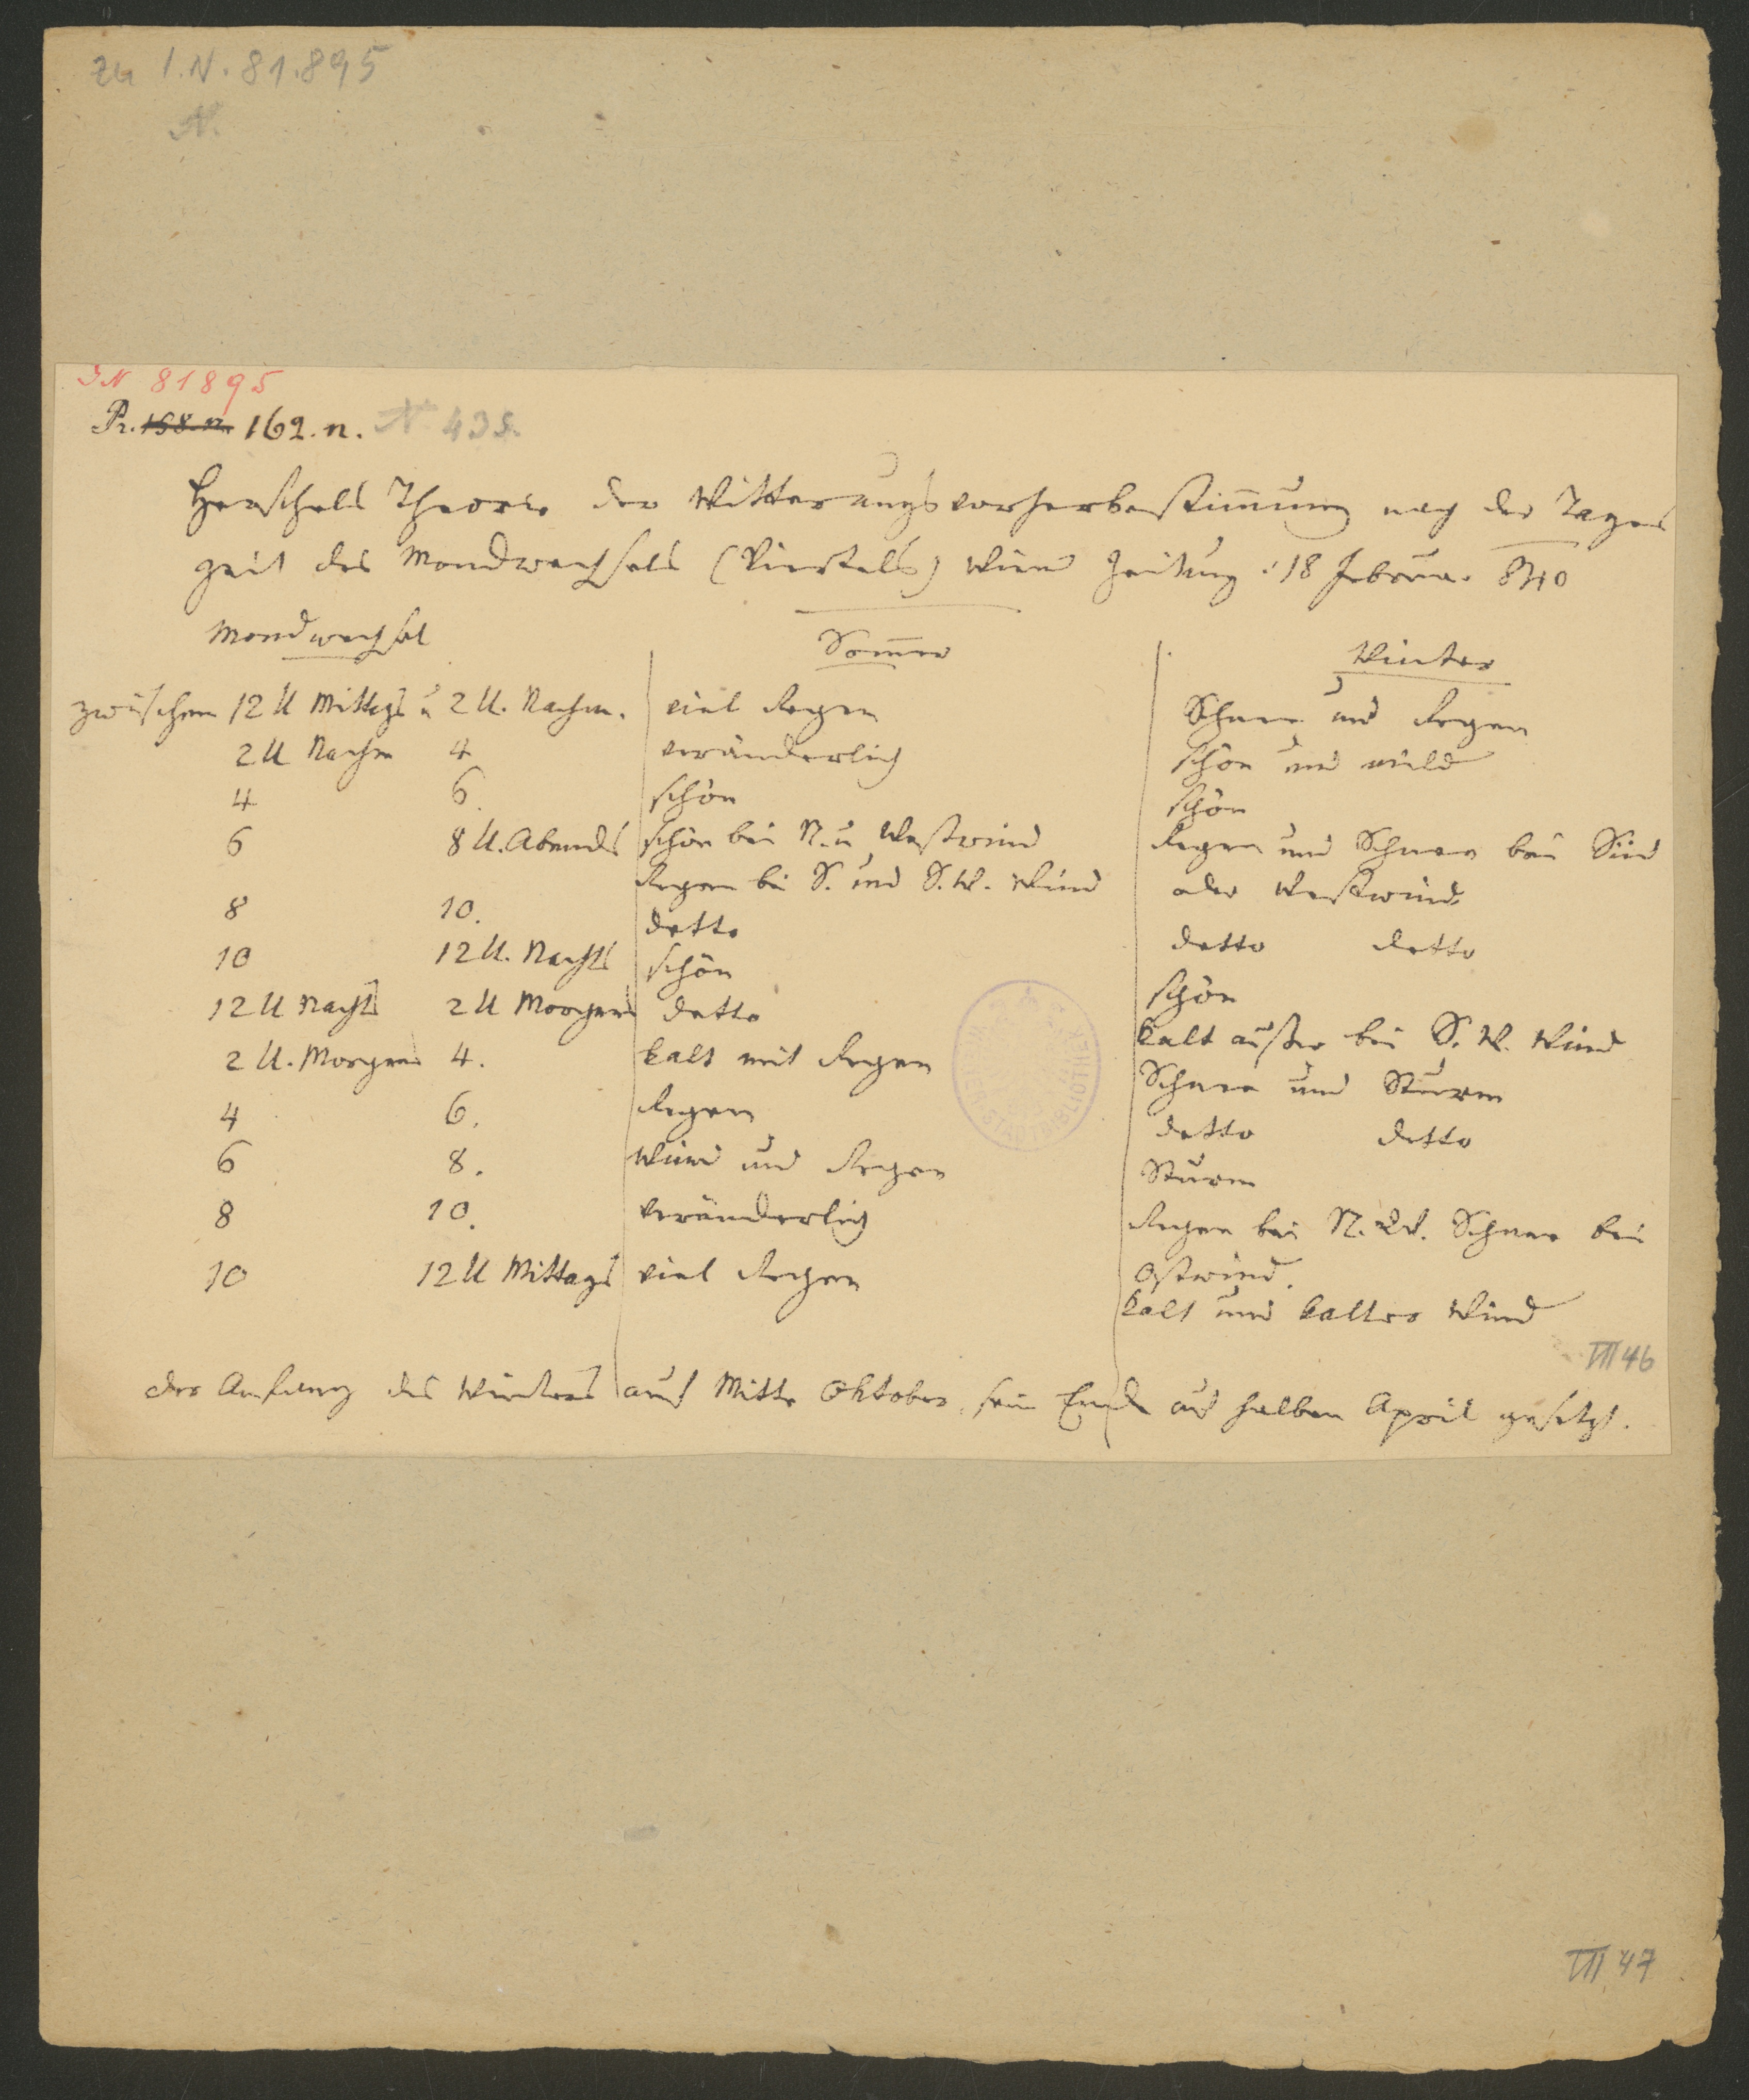 zu I.N. 81.895
N.
IN 81895
Pr. 158.n. 162.n. N. 435.
Herschels Theorie der Witterungsvorherbestimmung nach der Tages
zeit des Mondwechsels (Viertels) Wien Zeitung. 18 Februar 840
Mondwechsel Som̄er Winter
zwischen 12 U Mittgs u 2 U. Nachm. viel Regen Schnee und Regen
2 U Nachm 4 veränderlich schön und mild
4 6. schön schön
6 8 U. Abends schön bei N. u Westwind Regen und Schnee bei Süd
Regen bei S. und S.W. Wind oder Westwind.
8 10. detto detto detto
10 12 U. Nachts schön schön
12 U Nachts 2 U Morgens detto kalt außer bei S. W. Wind
2 U. Morgens 4. kalt mit Regen Schnee und Sturm
4 6. Regen detto detto
6 8. Wind und Regen Sturm
8 10. veränderlich Regen bei N.W. Schnee bei
Ostwind.
10 12 U Mittags viel Regen kalt und kalter Wind
VII 46
der Anfang des Winters auf Mitte Oktober, sein Ende auf halben April gesetzt.
VII 47